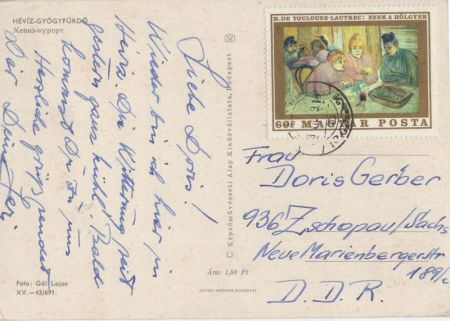 HÉVÍZ-GYÓGYFÜRDŐ
Хевиз-курорт
Liebe Doris!
Wieder bin ich hier in
Hévíz. Die Witterung seit
gestern ganz kühl! Bald
kommst Du zu uns
Herzliche
Foto: Gál Lajos
XV.—43/691.
© Képzőművészeti Alap Kiadóvállalata, Budapest
Ára: 1,50 Ft
OFFSET-NYOMDA BUDAPEST
H.DE TOULOUSE-LAUTREC: EZEK A HÖLGYEK
60f MAGYAR POSTA
Frau
Doris Gerber
936 Zschopau/Sachs
Neue Marienbergerstr
189/c
D.D.R.